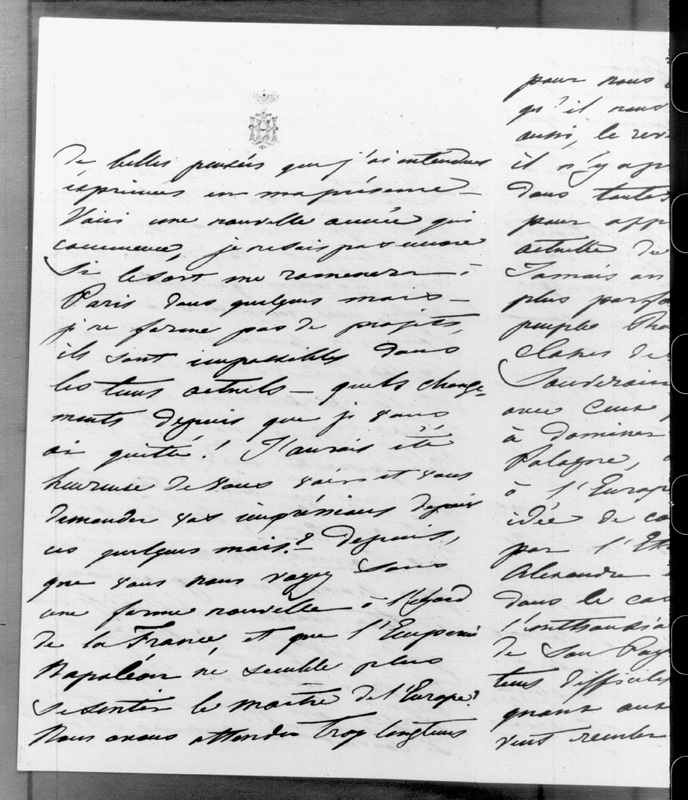 de belles pensées que j'ai entendues
exprimées en ma présence –
Voici une nouvelle année qui
commence, je ne sais pas encore
si le sort me ramenera à
Paris dans quelques mois –
je ne forme pas de projets,
ils sont impossibles dans
les tems actuels – quels change-
ments depuis que je vous
ai quitté! J'aurais été
heureuse de vous voir et vous
demander vos impressions depuis
ces quelques mois? depuis,
que vous nous voyez sous
une forme nouvelle à l'égard
de la France et que l'Empereur
Napoléon ne semble plus
se sentir le maître de l'Europe?
Nous avons attendu trop longtems
pour nous
qu'il nous
aussi, le
il n'y a
dans toutes
pour
actuelle de
Jamais on
plus
peuple
classes de
Souverain
avec ceux
à dominer
Pologne,
à l'Europe
idée de
par
Alexandre
dans le
l'enthousia
de son Pays
tems difficiles
quant aux
veut